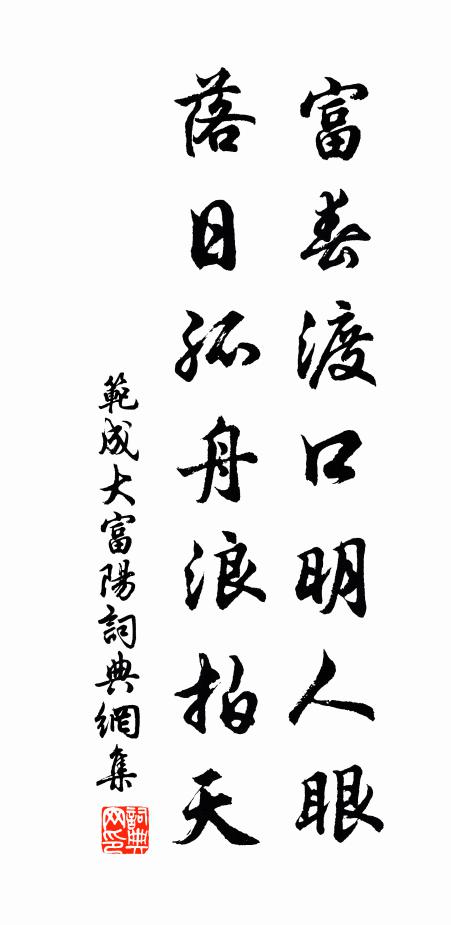 富春渡口明人眼
落日孤舟浪拍天
範成大富陽詞典網集
詞典网印